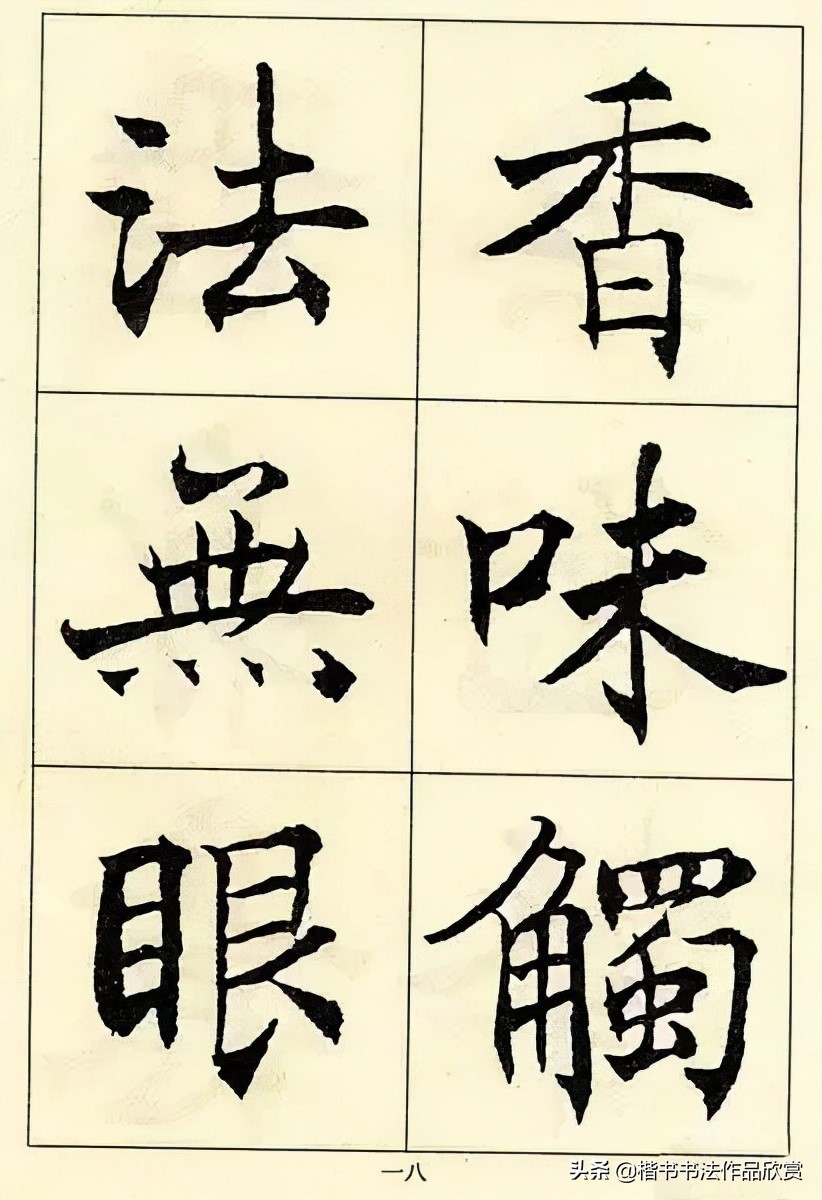 香味觸
法無眼
一八
头条 @楷书书法作品欣赏